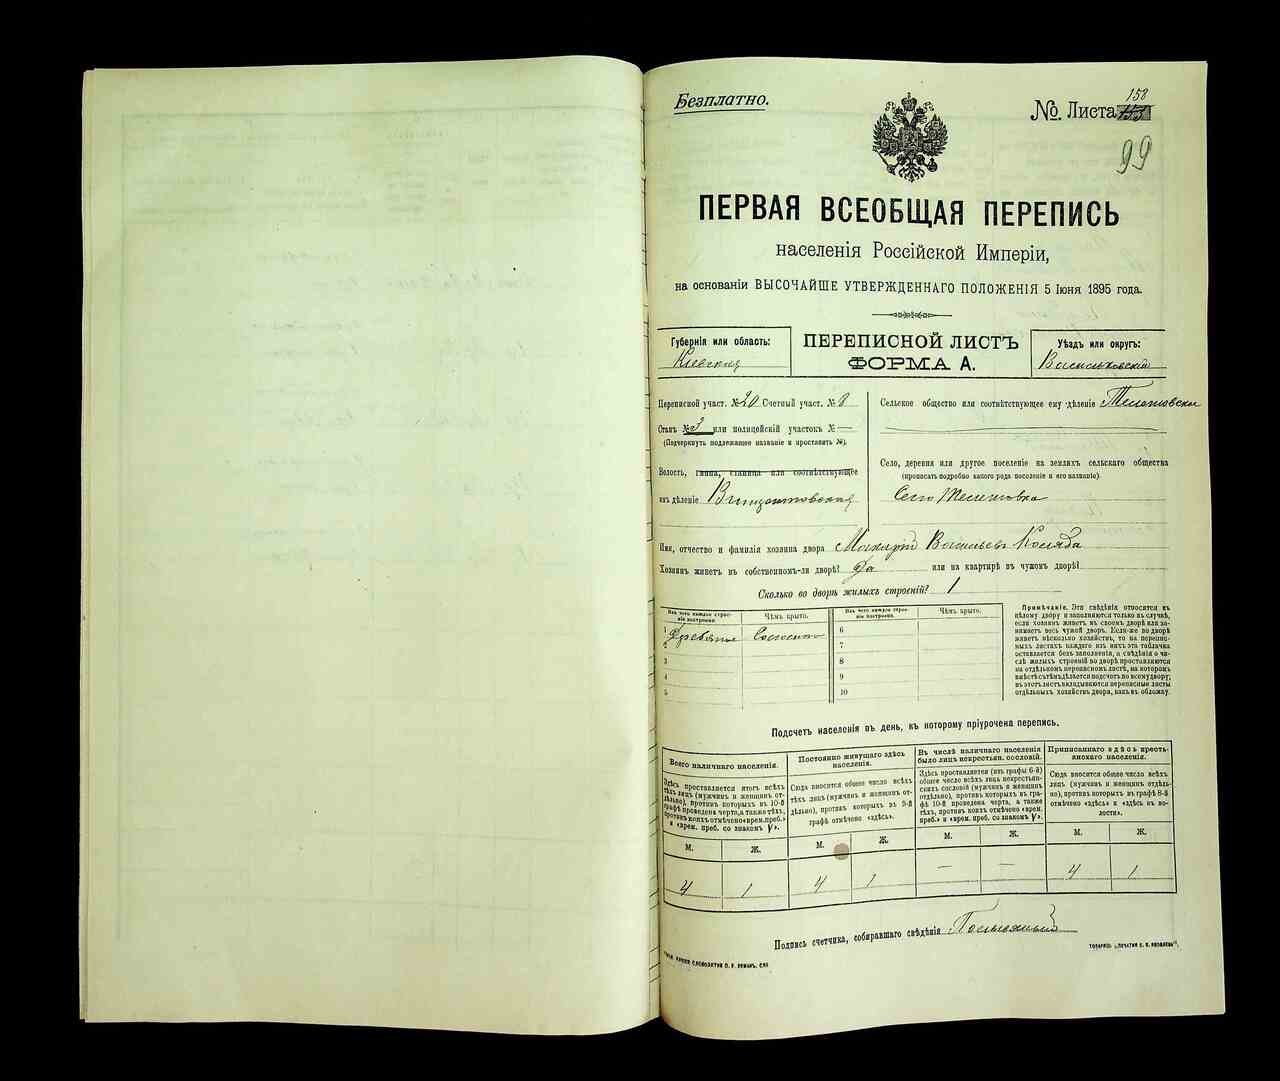 Безплатно.
158
№. Листа
99
ПЕРВАЯ ВСЕОБЩАЯ ПЕРЕПИСЬ
населенія Россійской Имперіи,
на основаніи ВЫСОЧАЙШЕ УТВЕРЖДЕННАГО ПОЛОЖЕНІЯ 5 Іюня 1895 года.
Губернія или область:
Кіевская
ПЕРЕПИСНОЙ ЛИСТЪ
ФОРМА А.
Уѣздъ или округъ:
Васильковскій
Переписной участ. № 20 Счетный участ. № 8
Станъ № 3 или полицейскій участокъ № —
(Подчеркнуть подлежащее названіе и проставить №).
Волость, гмина, станица или соотвѣтствующее
имъ дѣленіе
Сельское общество или соотвѣтствующее ему дѣленіе
Село, деревня или другое поселеніе на земляхъ сельскаго общества
(прописать подробно какого рода поселеніе и его названіе).
Село
Имя, отчество и фамилія хозяина двора Макарій Васильевъ Коляда
Хозяинъ живетъ въ собственномъ-ли дворѣ? Да или на квартирѣ въ чужомъ дворѣ?
Сколько во дворѣ жилыхъ строеній? 1
Изъ чего каждое строеніе построено.
Чѣмъ крыто.
Изъ чего каждое строеніе построено.
Чѣмъ крыто.
1 Соломою 6
2 7
3 8
4 9
5 10
Примѣчаніе. Эти свѣдѣнія относятся къ
цѣлому двору и заполняются только въ случаѣ,
если хозяинъ живетъ въ своемъ дворѣ или занимаетъ
весь чужой дворъ. Если-же во дворѣ
живетъ нѣсколько хозяйствъ, то на переписныхъ
листахъ каждаго изъ нихъ эта табличка
оставляется безъ заполненія, а свѣдѣнія о числѣ
жилыхъ строеній во дворѣ проставляются
на отдѣльномъ переписномъ листѣ, на которомъ
вмѣстѣ съ тѣмъ дѣлается подсчетъ по всему двору;
въ этотъ листъ вкладываются переписные листы
отдѣльныхъ хозяйствъ двора, какъ въ обложку.
Подсчетъ населенія въ день, къ которому пріурочена перепись.
Всего наличнаго населенія.
Здѣсь проставляется итогъ всѣхъ
тѣхъ лицъ (мужчинъ и женщинъ отдѣльно),
противъ которыхъ въ 10-й
графѣ проведена черта, а также тѣхъ,
противъ коихъ отмѣчено «врем. преб.»
и «врем. преб. со знакомъ V».
Постоянно живущаго здѣсь
населенія.
Сюда вносится общее число всѣхъ
тѣхъ лицъ (мужчинъ и женщинъ отдѣльно),
противъ которыхъ въ 9-й
графѣ отмѣчено «здѣсь».
Въ числѣ наличнаго населенія
было лицъ некрестьян. сословій.
Здѣсь проставляется (изъ графы 6-й)
общее число всѣхъ лицъ некрестьянскихъ
сословій (мужчинъ и женщинъ
отдѣльно), противъ которыхъ въ графѣ
10-й проведена черта, а также
тѣхъ, противъ коихъ отмѣчено «врем.
преб.» и «врем. преб. со знакомъ V».
Приписаннаго здѣсь крестьянскаго
населенія.
Сюда вносится общее число всѣхъ
лицъ (мужчинъ и женщинъ отдѣльно),
противъ которыхъ въ графѣ 8-й
отмѣчено «здѣсь» и «здѣсь въ волости».
М. Ж. М. Ж. М. Ж. М. Ж.
4 1 4 1 — — 4 1
Подпись счетчика, собиравшаго свѣдѣнія